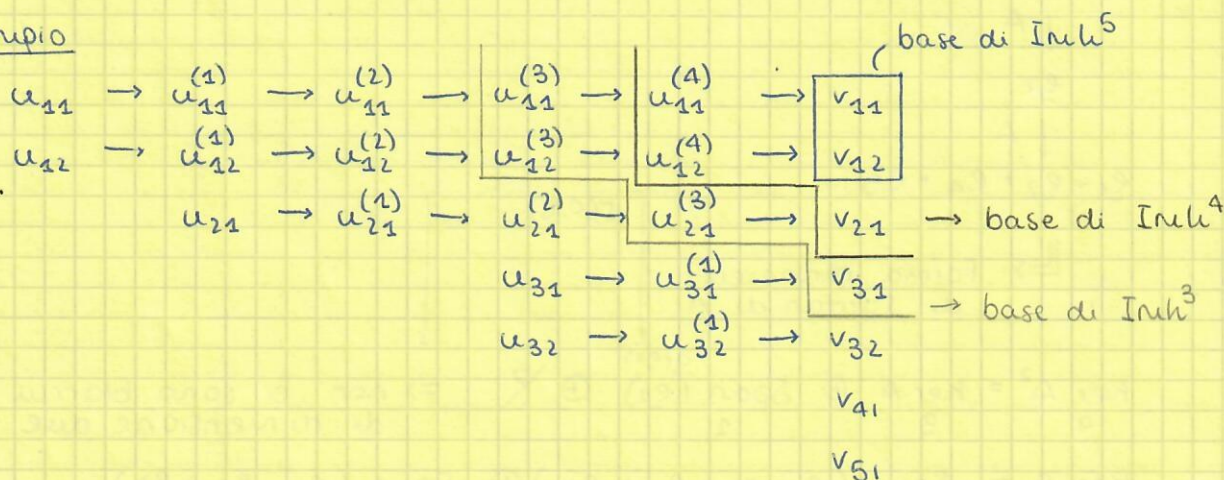 mpio
base di Imh⁵
u₁₁ → u₁₁⁽¹⁾ → u₁₁⁽²⁾ → u₁₁⁽³⁾ → u₁₁⁽⁴⁾ → v₁₁
u₁₂ → u₁₂⁽¹⁾ → u₁₂⁽²⁾ → u₁₂⁽³⁾ → u₁₂⁽⁴⁾ → v₁₂
u₂₁ → u₂₁⁽¹⁾ → u₂₁⁽²⁾ → u₂₁⁽³⁾ → v₂₁ → base di Imh⁴
u₃₁ → u₃₁⁽¹⁾ → v₃₁
→ base di Imh³
u₃₂ → u₃₂⁽¹⁾ → v₃₂
v₄₁
v₅₁